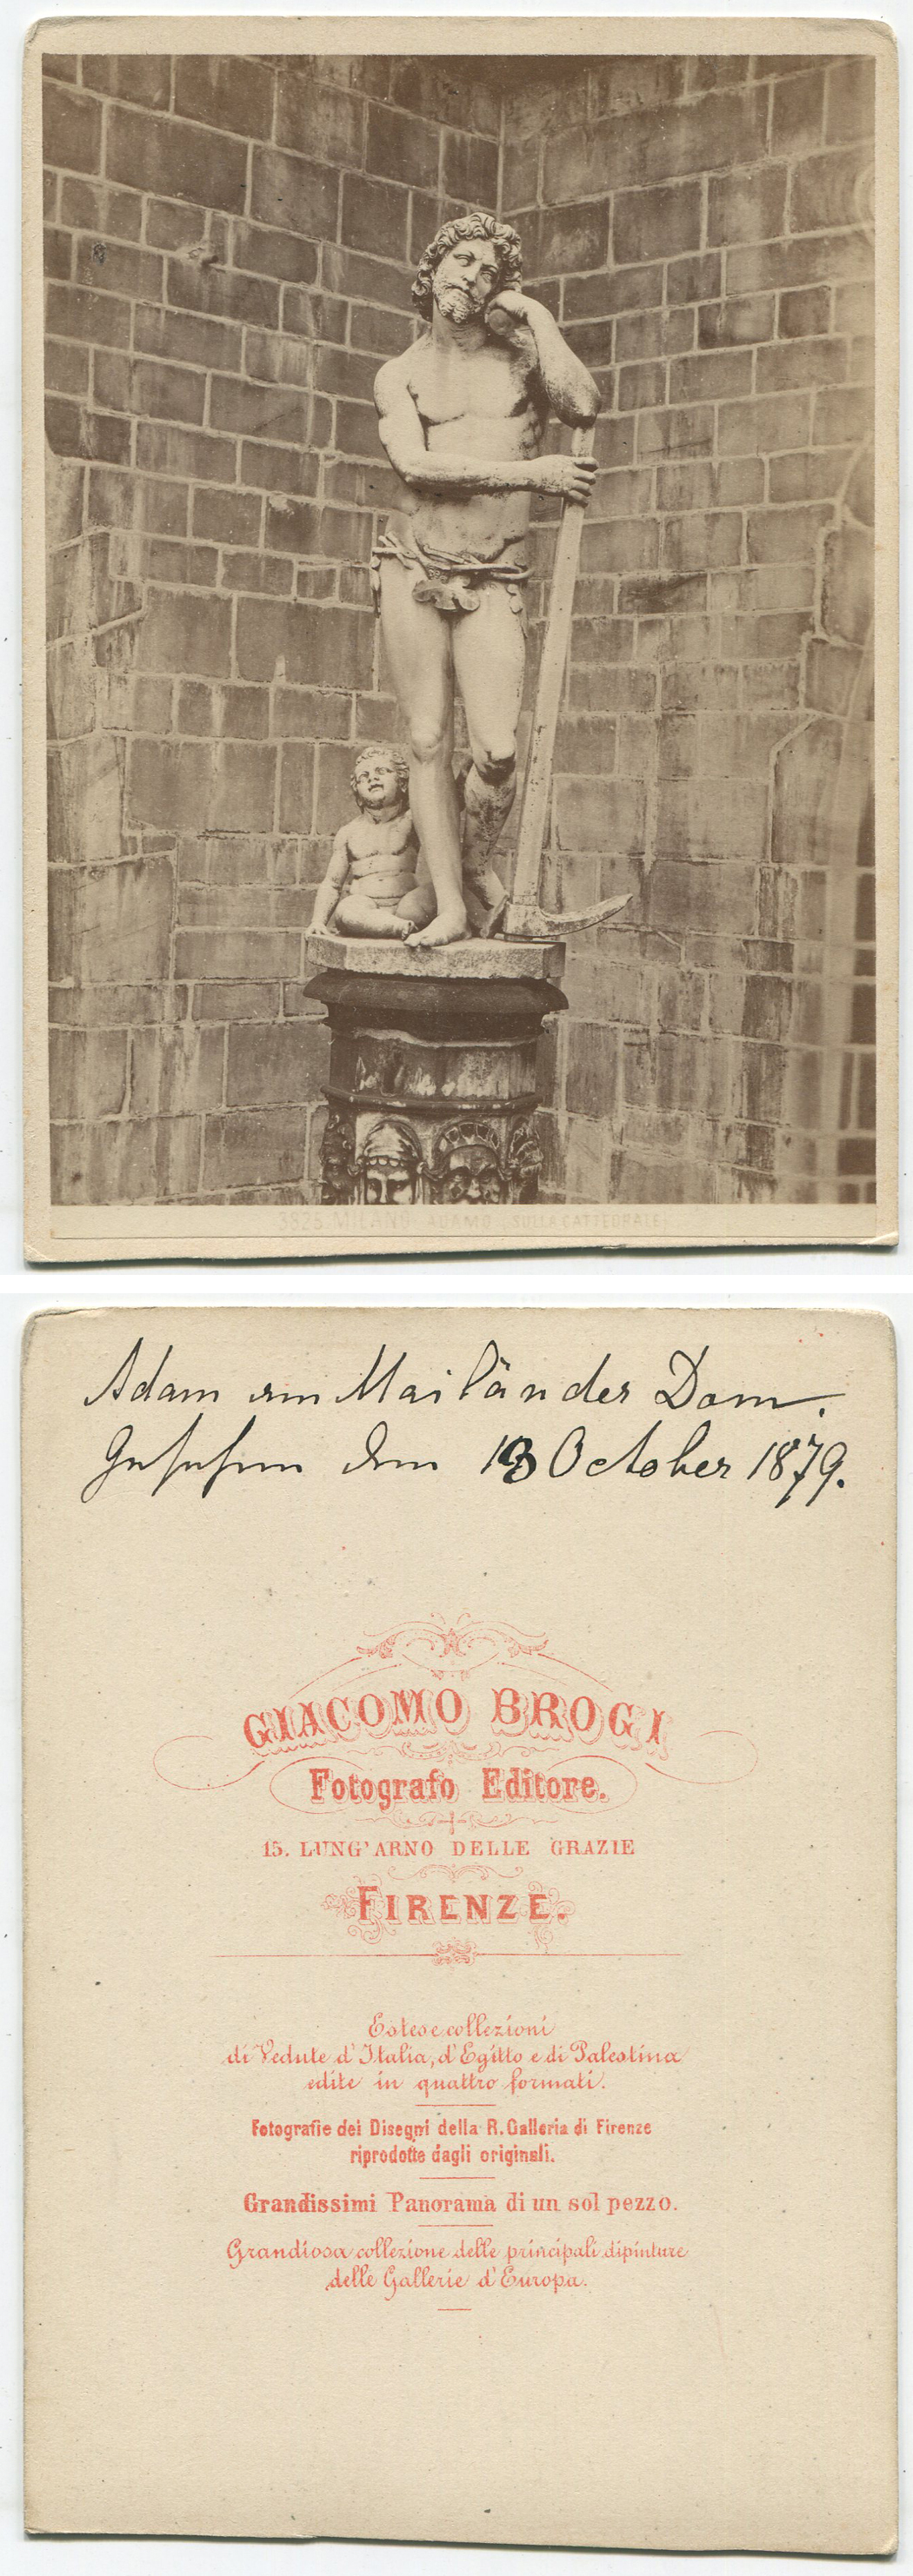 3825. MILANO ADAMO (SULLA CATTEDRALE)
Adam am Mailänder Dom.
Gesehen den 13 October 1879.
GIACOMO BROGI
Fotografo Editore.
15. LUNG'ARNO DELLE GRAZIE
FIRENZE.
Estese collezioni
di Vedute d'Italia, d'Egitto e di Palestina
edite in quattro formati.
Fotografie dei Disegni della R. Galleria di Firenze
riprodotte dagli originali.
Grandissimi Panorama di un sol pezzo.
Grandiosa collezione delle principali dipinture
delle Gallerie d'Europa.